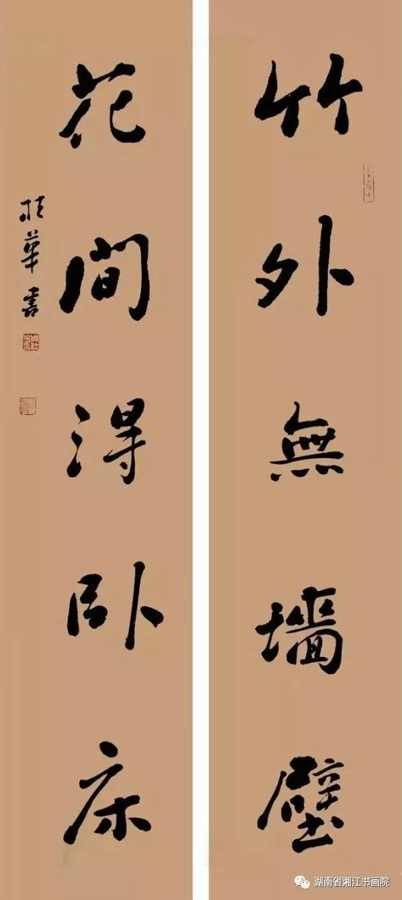 竹外無墻壁
花間得卧床
桂華書
湖南省湘江书画院